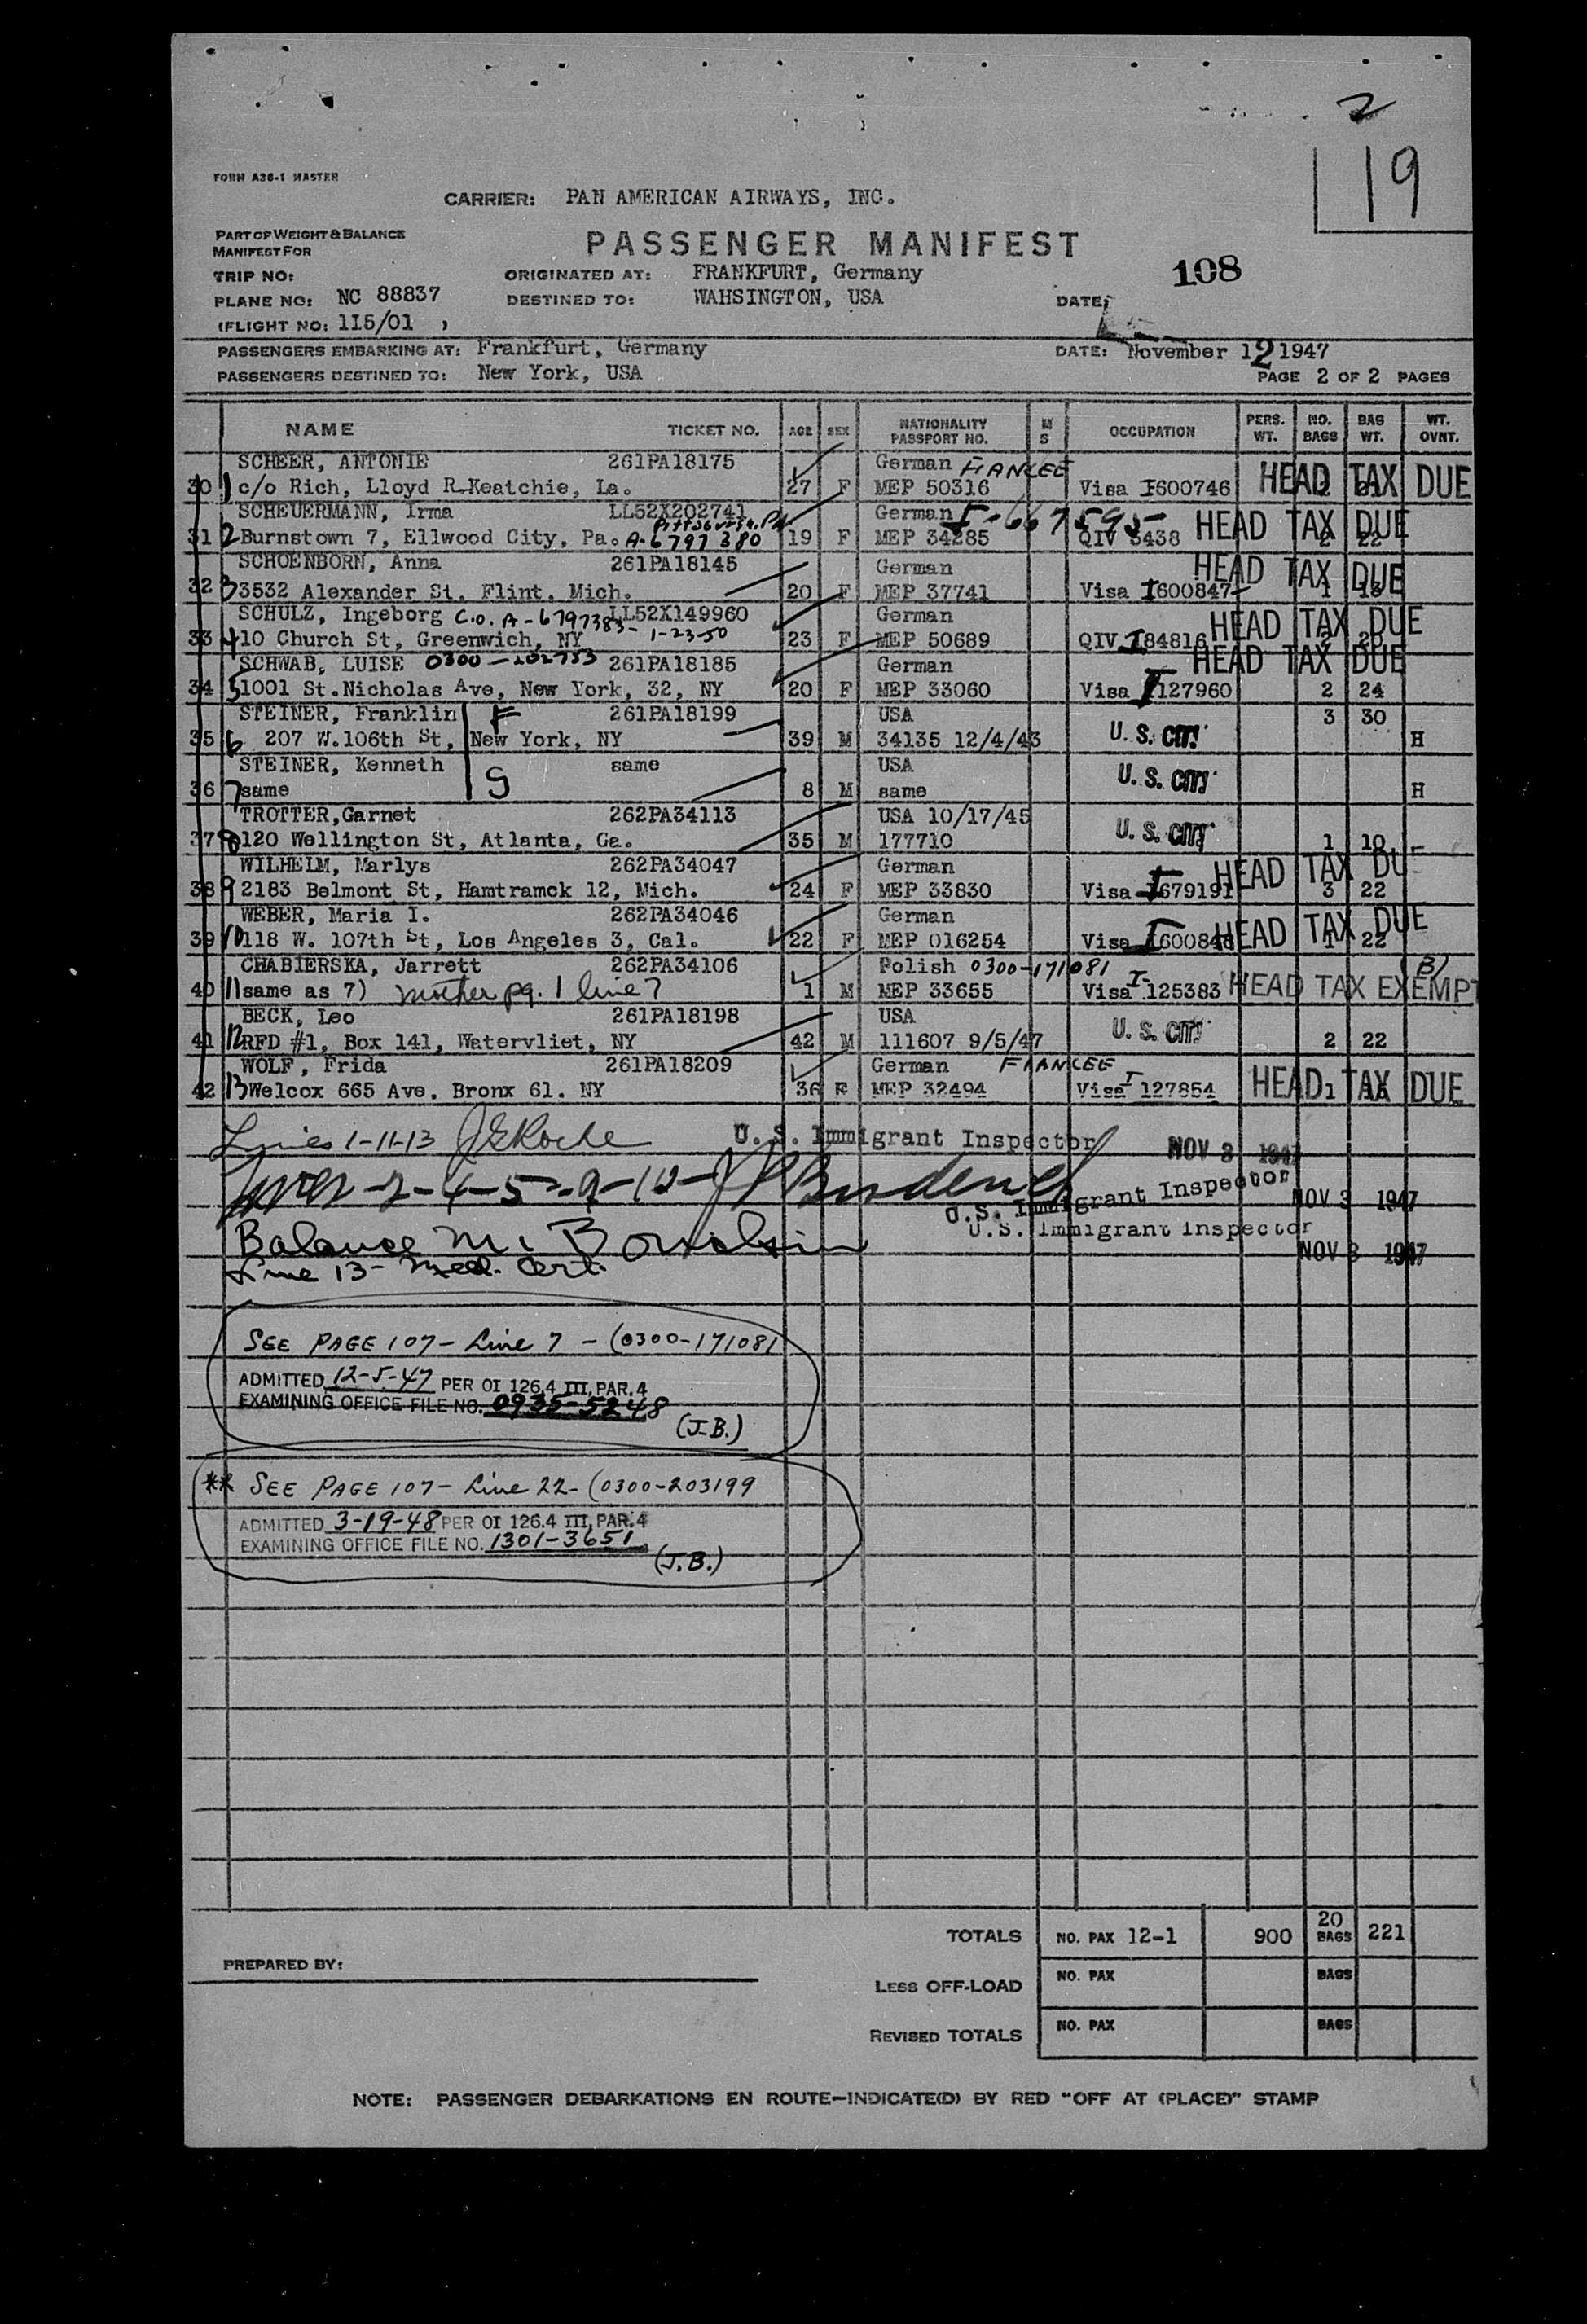 2
19
FORM A36-1 MASTER
CARRIER: PAN AMERICAN AIRWAYS, INC.
PART OF WEIGHT & BALANCE
MANIFEST FOR
PASSENGER MANIFEST
108
TRIP NO:
ORIGINATED AT: FRANKFURT, Germany
PLANE NO: NC 88837
DESTINED TO: WAHSINGTON, USA
DATE:
(FLIGHT NO: 115/01 )
PASSENGERS EMBARKING AT: Frankfurt, Germany
DATE: November 12 1947
PASSENGERS DESTINED TO: New York, USA
PAGE 2 OF 2 PAGES
NAME TICKET NO. AGE SEX NATIONALITY PASSPORT NO. M S OCCUPATION PERS. WT. NO. BAGS BAG WT. WT. OVNT.
SCHEER, ANTONIE 261PA18175 German FIANCEE
30 1 c/o Rich, Lloyd R.Keatchie, La. 27 F MEP 50316 Visa I600746 HEAD TAX DUE
SCHEUERMANN, Irma LL52X202741 German I-667595
31 2 Burnstown 7, Ellwood City, Pa. A-6797380 19 F MEP 34285 QIV 3438 HEAD TAX DUE 2 22
SCHOENBORN, Anna 261PA18145 German
32 3 3532 Alexander St. Flint. Mich. 20 F MEP 37741 Visa I600847 HEAD TAX DUE 1 18
SCHULZ, Ingeborg C.O. A-6797383- 1-23-50 LL52X149960 German
33 4 10 Church St, Greenwich, NY 23 F MEP 50689 QIV I84816 HEAD TAX DUE
SCHWAB, LUISE 0300-202753 261PA18185 German
34 5 1001 St.Nicholas Ave, New York, 32, NY 20 F MEP 33060 Visa I127960 HEAD TAX DUE 2 24
STEINER, Franklin F 261PA18199 USA 3 30
35 6 207 W.106th St, New York, NY 39 M 34135 12/4/43 U.S. CIT. H
STEINER, Kenneth S same USA
36 7 same 8 M same U.S. CIT. H
TROTTER,Garnet 262PA34113 USA 10/17/45
37 8 120 Wellington St, Atlanta, Ga. 35 M 177710 U.S. CIT. 1 10
WILHELM, Marlys 262PA34047 German
38 9 2183 Belmont St, Hamtramck 12, Mich. 24 F MEP 33830 Visa I679191 HEAD TAX DUE 3 22
WEBER, Maria I. 262PA34046 German
39 10 118 W. 107th St, Los Angeles 3, Cal. 22 F MEP 016254 Visa I600848 HEAD TAX DUE 1 22
CHABIERSKA, Jarrett 262PA34106 Polish 0300-171081
40 11 same as 7) mother pg. 1 line 7 1 M MEP 33655 Visa I-125383 HEAD TAX EXEMPT
BECK, Leo 261PA18198 USA
41 12 RFD #1, Box 141, Watervliet, NY 42 M 111607 9/5/47 U.S. CIT. 2 22
WOLF, Frida 261PA18209 German FIANCEE
42 13 Welcox 665 Ave. Bronx 61. NY 36 F MEP 32494 Visa I 127854 HEAD TAX DUE
Lines 1-11-13 J E Roche U.S. Immigrant Inspector NOV 3 1947
Lines -2-4-5-9-10- U.S. Immigrant Inspector NOV 3 1947
Balance U.S. Immigrant Inspector
NOV 3 1947
Line 13- Med. Cert.
SEE PAGE 107- Line 7 - (0300-171081
ADMITTED 12-5-47 PER OI 126.4 III, PAR. 4
EXAMINING OFFICE FILE NO. 0935-5248
(J.B.)
** SEE PAGE 107- Line 22- (0300-203199
ADMITTED 3-19-48 PER OI 126.4 III, PAR. 4
EXAMINING OFFICE FILE NO. 1301-3651
(J.B.)
TOTALS NO. PAX 12-1 900 20 BAGS 221
PREPARED BY:
LESS OFF-LOAD NO. PAX BAGS
REVISED TOTALS NO. PAX BAGS
NOTE: PASSENGER DEBARKATIONS EN ROUTE—INDICATE(D) BY RED "OFF AT (PLACE)" STAMP